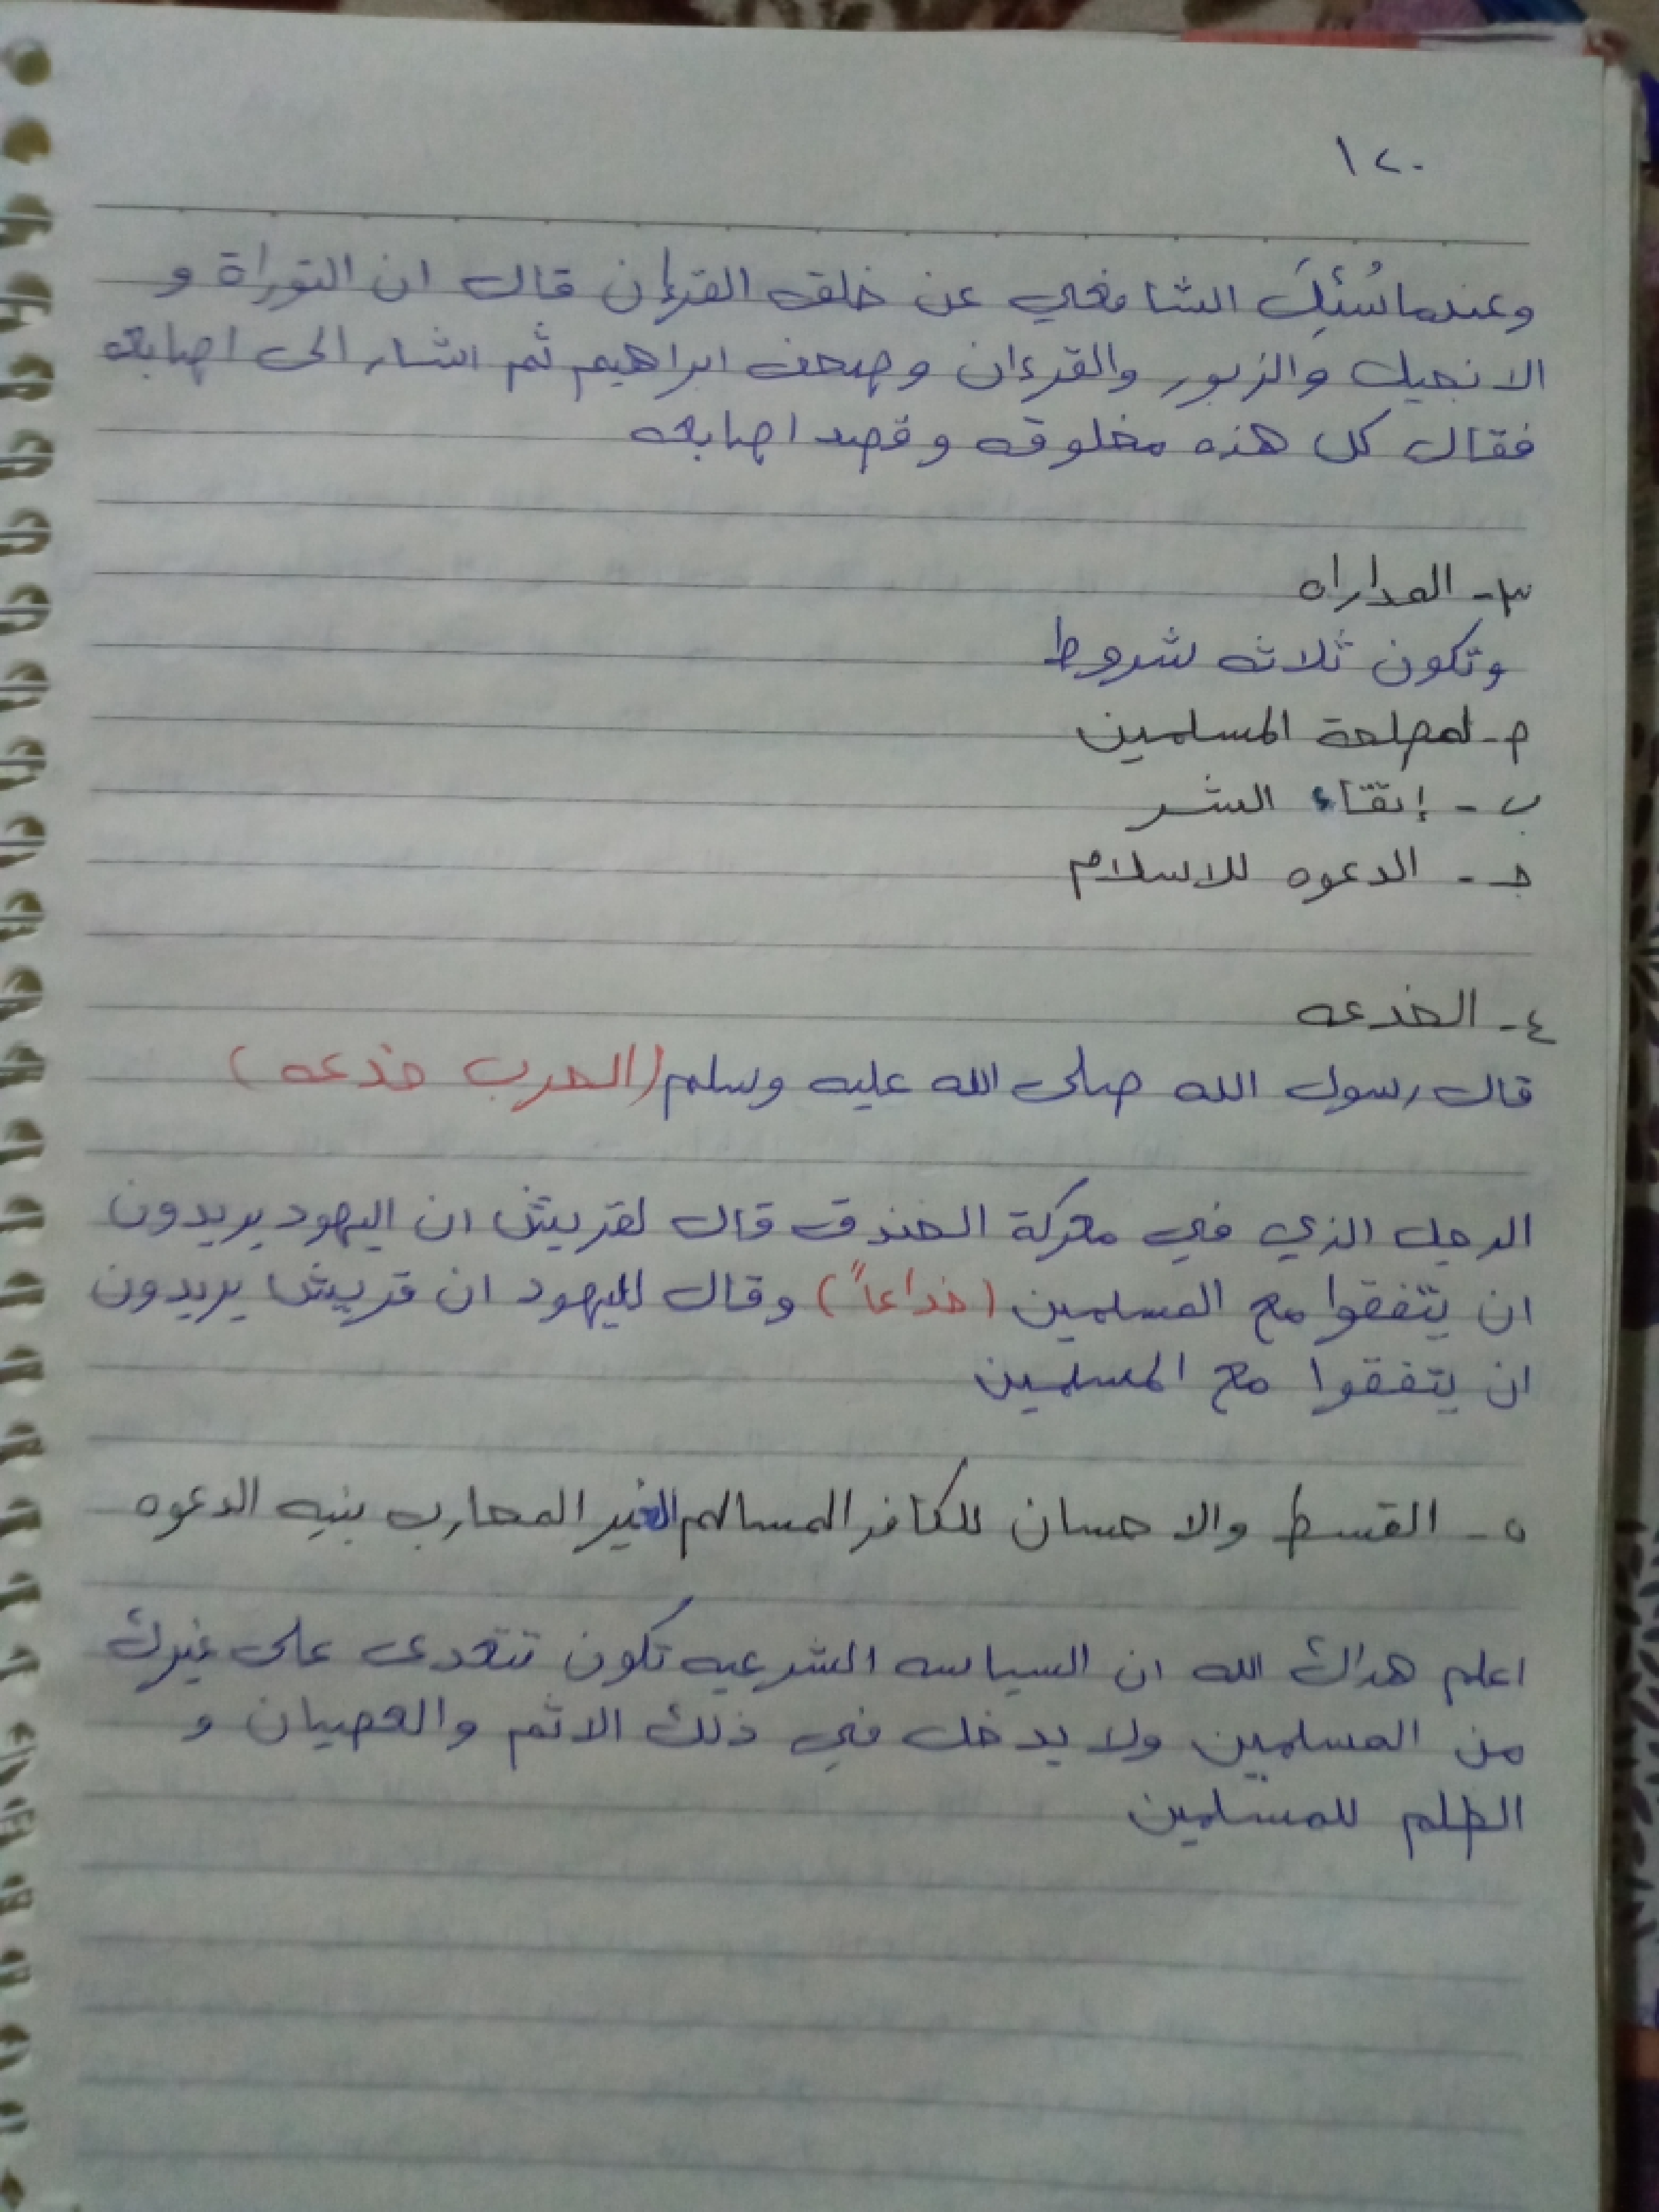 ١٢٠
وعندما سُئِلَ الشافعي عن خلق القرءان قال ان التوراة و
الانجيل والزبور والقرءان وصحف ابراهيم ثم اشار الى اصابعه
فقال كل هذه مخلوقه وقصد اصابعه
٣- المداراه
وتكون ثلاثه شروط
م- لمصلحة المسلمين
ب - إتقاء الشر
جـ - الدعوه للاسلام
٤- الخدعه
قال رسول الله صلى الله عليه وسلم (الحرب خدعه)
الرجل الذي في معركة الخندق قال لقريش ان اليهود يريدون
ان يتفقوا مع المسلمين (خداعاً) وقال لليهود ان قريش يريدون
ان يتفقوا مع المسلمين
٥- القسط والاحسان للكافر المسالم الغير المحارب بنيه الدعوه
اعلم هداك الله ان السياسه الشرعيه تكون تتعدى على غيرك
من المسلمين ولا يدخل في ذلك الاثم والعصيان و
الظلم للمسلمين